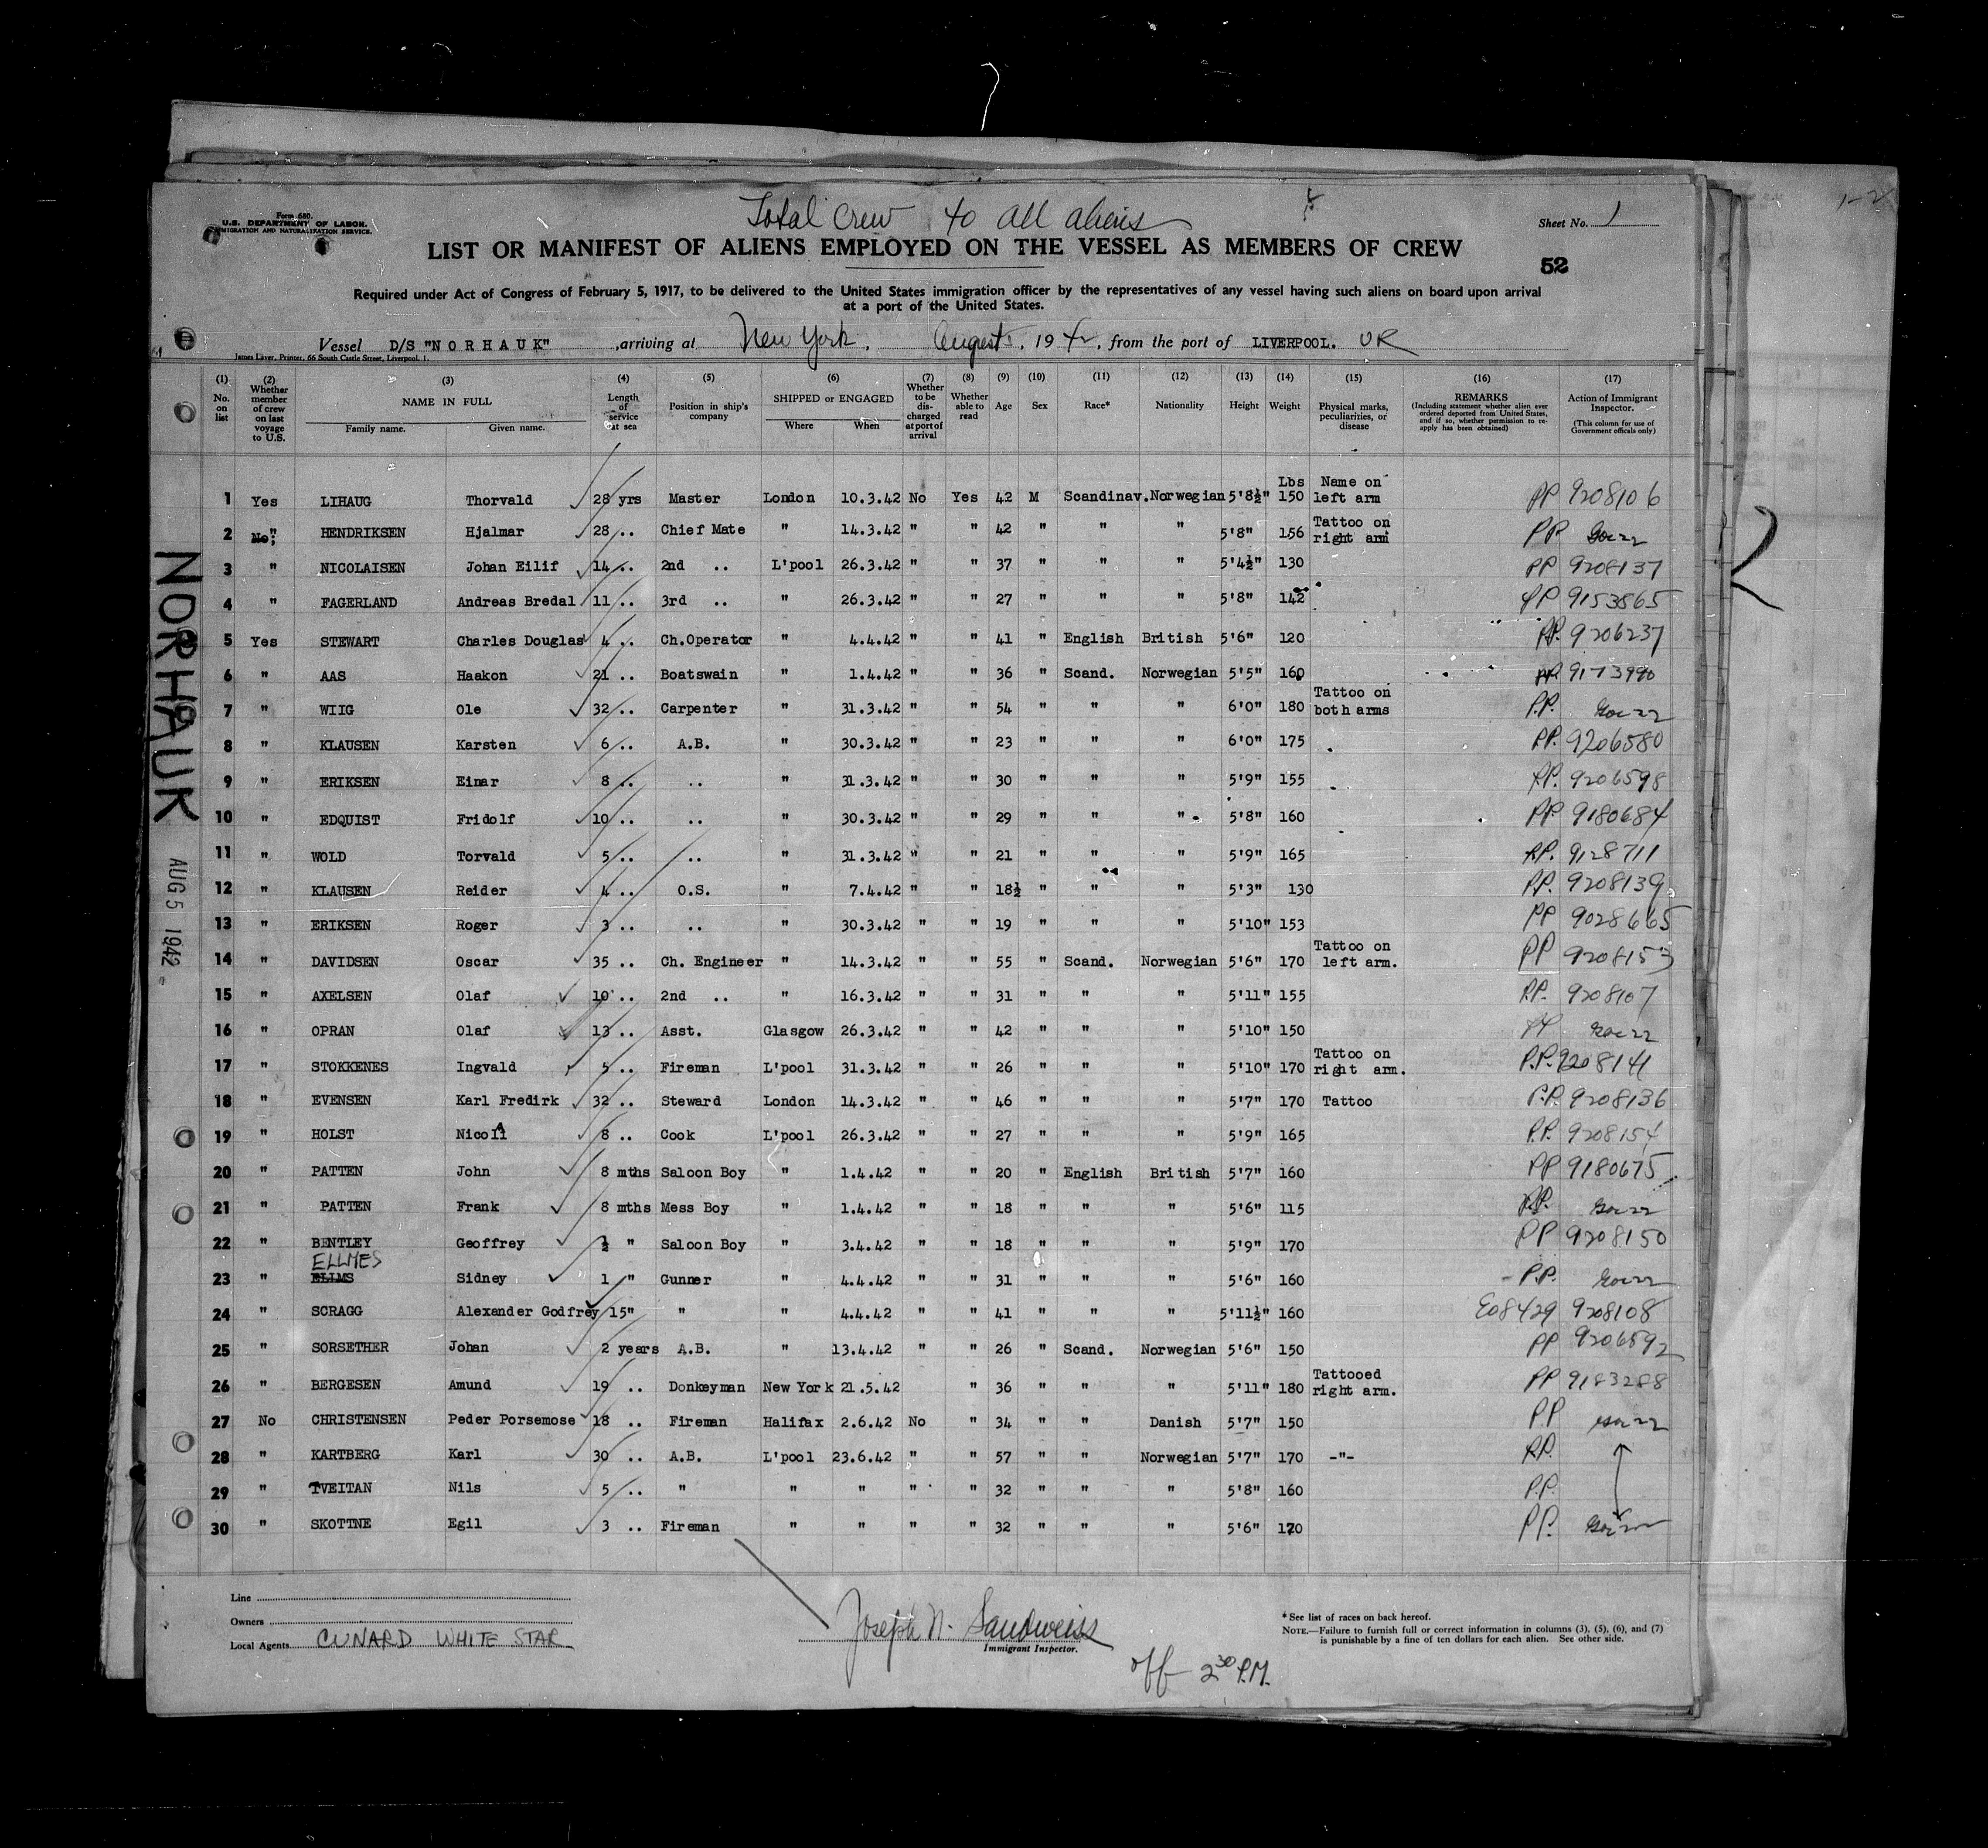 Total Crew 40 all aliens
Form 680.
U.S. DEPARTMENT OF LABOR.
IMMIGRATION AND NATURALIZATION SERVICE.
Sheet No. 1
LIST OR MANIFEST OF ALIENS EMPLOYED ON THE VESSEL AS MEMBERS OF CREW
52
Required under Act of Congress of February 5, 1917, to be delivered to the United States immigration officer by the representatives of any vessel having such aliens on board upon arrival
at a port of the United States.
Vessel D/S "NORHAUK" ,arriving at New York, August, 1942, from the port of LIVERPOOL. UK
James Laver, Printer, 66 South Castle Street, Liverpool. 1.
(1) No. on list (2) Whether member of crew on last voyage to U.S. (3) NAME IN FULL Family name. Given name. (4) Length of service at sea (5) Position in ship's company (6) SHIPPED or ENGAGED Where When (7) Whether to be discharged at port of arrival (8) Whether able to read (9) Age (10) Sex (11) Race* (12) Nationality (13) Height (14) Weight (15) Physical marks, peculiarities, or disease (16) REMARKS (Including statement whether alien ever ordered deported from United States, and if so, whether permission to re-apply has been obtained) (17) Action of Immigrant Inspector. (This column for use of Government officials only)
1 Yes LIHAUG Thorvald 28 yrs Master London 10.3.42 No Yes 42 M Scandinav. Norwegian 5'8½" Lbs 150 Name on left arm PP 9208106
2 No " HENDRIKSEN Hjalmar 28 .. Chief Mate " 14.3.42 " " 42 " " " 5'8" 156 Tattoo on right arm PP
3 " NICOLAISEN Johan Eilif 14 .. 2nd .. L'pool 26.3.42 " " 37 " " " 5'4½" 130 PP 9208137
4 " FAGERLAND Andreas Bredal 11 .. 3rd .. " 26.3.42 " " 27 " " " 5'8" 142 PP 9153865
5 Yes STEWART Charles Douglas 4 .. Ch.Operator " 4.4.42 " " 41 " English British 5'6" 120 PP. 9206237
6 " AAS Haakon 21 .. Boatswain " 1.4.42 " " 36 " Scand. Norwegian 5'5" 160 PP 9173990
7 " WIIG Ole 32 .. Carpenter " 31.3.42 " " 54 " " " 6'0" 180 Tattoo on both arms P.P.
8 " KLAUSEN Karsten 6 .. A.B. " 30.3.42 " " 23 " " " 6'0" 175 PP. 9206580
9 " ERIKSEN Einar 8 .. .. " 31.3.42 " " 30 " " " 5'9" 155 PP. 9206598
10 " EDQUIST Fridolf 10 .. .. " 30.3.42 " " 29 " " " 5'8" 160 PP. 9180684
11 " WOLD Torvald 5 .. .. " 31.3.42 " " 21 " " " 5'9" 165 PP. 9128711
12 " KLAUSEN Reider 4 .. O.S. " 7.4.42 " " 18½ " " " 5'3" 130 PP. 9208139
13 " ERIKSEN Roger 3 .. .. " 30.3.42 " " 19 " " " 5'10" 153 PP 9028665
14 " DAVIDSEN Oscar 35 .. Ch. Engineer " 14.3.42 " " 55 " Scand. Norwegian 5'6" 170 Tattoo on left arm. PP 9208153
15 " AXELSEN Olaf 10 .. 2nd .. " 16.3.42 " " 31 " " " 5'11" 155 PP. 9208107
16 " OPRAN Olaf 13 .. Asst. Glasgow 26.3.42 " " 42 " " " 5'10" 150 PP
17 " STOKKENES Ingvald 5 .. Fireman L'pool 31.3.42 " " 26 " " " 5'10" 170 Tattoo on right arm. P.P. 9208141
18 " EVENSEN Karl Fredirk 32 .. Steward London 14.3.42 " " 46 " " " 5'7" 170 Tattoo P.P. 9208136
19 " HOLST Nicoli 8 .. Cook L'pool 26.3.42 " " 27 " " " 5'9" 165 P.P. 9208154
20 " PATTEN John 8 mths Saloon Boy " 1.4.42 " " 20 " English British 5'7" 160 PP 9180675
21 " PATTEN Frank 8 mths Mess Boy " 1.4.42 " " 18 " " " 5'6" 115 P.P.
22 " BENTLEY Geoffrey ½ " Saloon Boy " 3.4.42 " " 18 " " " 5'9" 170 PP 9208150
ELLMES
23 " ELLMS Sidney 1 " Gunner " 4.4.42 " " 31 " " " 5'6" 160 P.P.
24 " SCRAGG Alexander Godfrey 15" " " 4.4.42 " " 41 " " " 5'11½" 160 E08429 9208108
25 " SORSETHER Johan 2 years A.B. " 13.4.42 " " 26 " Scand. Norwegian 5'6" 150 PP 9206592
26 " BERGESEN Amund 19 .. Donkeyman New York 21.5.42 " 36 " " " 5'11" 180 Tattooed right arm. PP 9183288
27 No CHRISTENSEN Peder Porsemose 18 .. Fireman Halifax 2.6.42 No " 34 " " Danish 5'7" 150 P.P
28 " KARTBERG Karl 30 .. A.B. L'pool 23.6.42 " " 57 " " Norwegian 5'7" 170 -"- P.P.
29 " TVEITAN Nils 5 .. " " " " " 32 " " " 5'8" 160 P.P.
30 " SKOTTNE Egil 3 .. Fireman " " " " 32 " " " 5'6" 170 PP.
NORHAUK
AUG 5 1942
Line
Owners
Local Agents CUNARD WHITE STAR
Joseph N. Sandweiss
Immigrant Inspector.
off 2 30 P.M.
* See list of races on back hereof.
NOTE.—Failure to furnish full or correct information in columns (3), (5), (6), and (7)
is punishable by a fine of ten dollars for each alien. See other side.
1-2
2